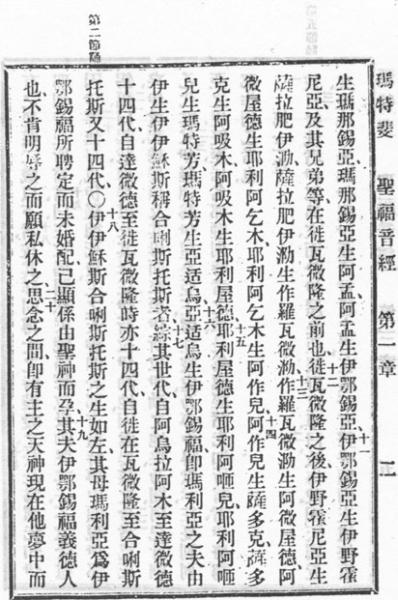 瑪特斐 聖福音經 第一章 二
生瑪那錫亞瑪那錫亞生阿孟阿孟生伊鄂錫亞十一伊鄂錫亞生伊野霍
尼亞及其兄弟等在徙瓦微隆之前也十二徙瓦微隆之後伊野霍尼亞生
薩拉肥伊泐薩拉肥伊泐生作羅瓦微泐十三作羅瓦微泐生阿微屋德阿
微屋德生耶利阿乞木耶利阿乞木生阿作兒十四阿作兒生薩多克薩多
克生阿吸木阿吸木生耶利屋德十五耶利屋德生耶利阿咂兒耶利阿咂
兒生瑪特芳瑪特芳生亞适烏亞十六适烏生伊鄂錫福卽瑪利亞之夫由
伊生伊伊穌斯稱合唎斯托斯者十七綜其世代自阿烏拉阿木至達微德
十四代自達微德至徙瓦微隆時亦十四代自徙在瓦微隆至合唎斯
托斯又十四代〇十八伊伊穌斯合唎斯托斯之生如左其母瑪利亞爲伊
鄂錫福所聘定而未婚配已顯係由聖神而孕十九其夫伊鄂錫福義德人
也不肯明辱之而願私休之二十思念之間卽有主之天神現在他夢中而
第二節